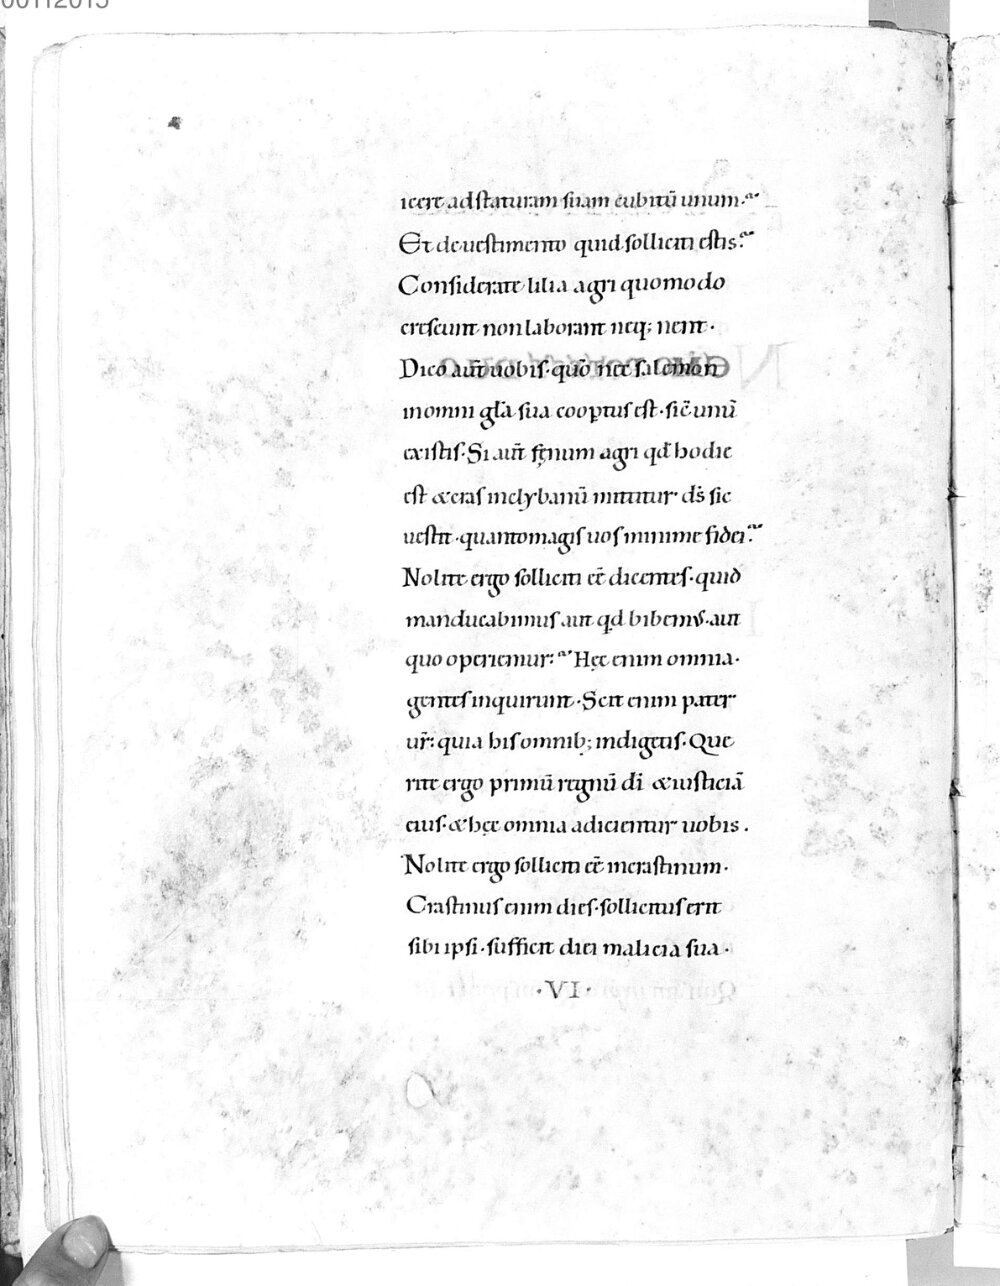 icere ad staturam suam cubitū unum.
Et de uestimento quid solliciti estis?
Considerate lilia agri quomodo
crescunt non laborant neq; nent.
Dico aūt uobis. quō nec salomon
in omni gła sua coop̱tus est. sic̄ unū
ex istis. Si aūt fęnum agri qđ hodie
est & cras in clybanū mittitur dš sic
uestit. quanto magis uos minime fidei?
Nolite ergo solliciti eē dicentes. quid
manducabimus aut qđ bibemus. aut
quo operiemur? Hęc enim omnia.
gentes inquirunt. Scit enim pater
ur̄: quia his omnib; indigetis. Que
rite ergo primū regnū dī & iusticiā
eius. & hęc omnia adicientur uobis.
Nolite ergo solliciti eē in crastinum.
Crastinus enim dies. sollicitus erit
sibi ipsi. sufficit diei malicia sua.
.VI.